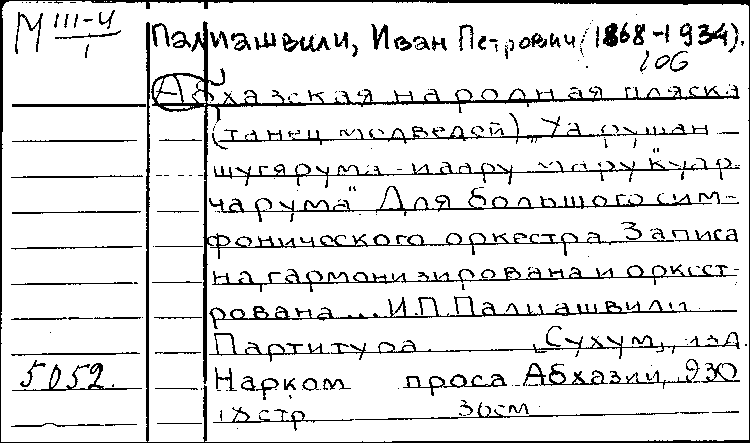 М III-4/1
Палиашвили, Иван Петрович (1868-1934).
106
Абхазская народная пляска
(танец медведей) „Уа рушан
шугярума-наару мару "куар
чарума" Для большого сим-
фонического оркестра Записа
на, гармонизирована и оркест-
рована... И.П. Палиашвили
Партитура. Сухум, изд.
5052. Нарком проса Абхазии, 930
18 стр 36см